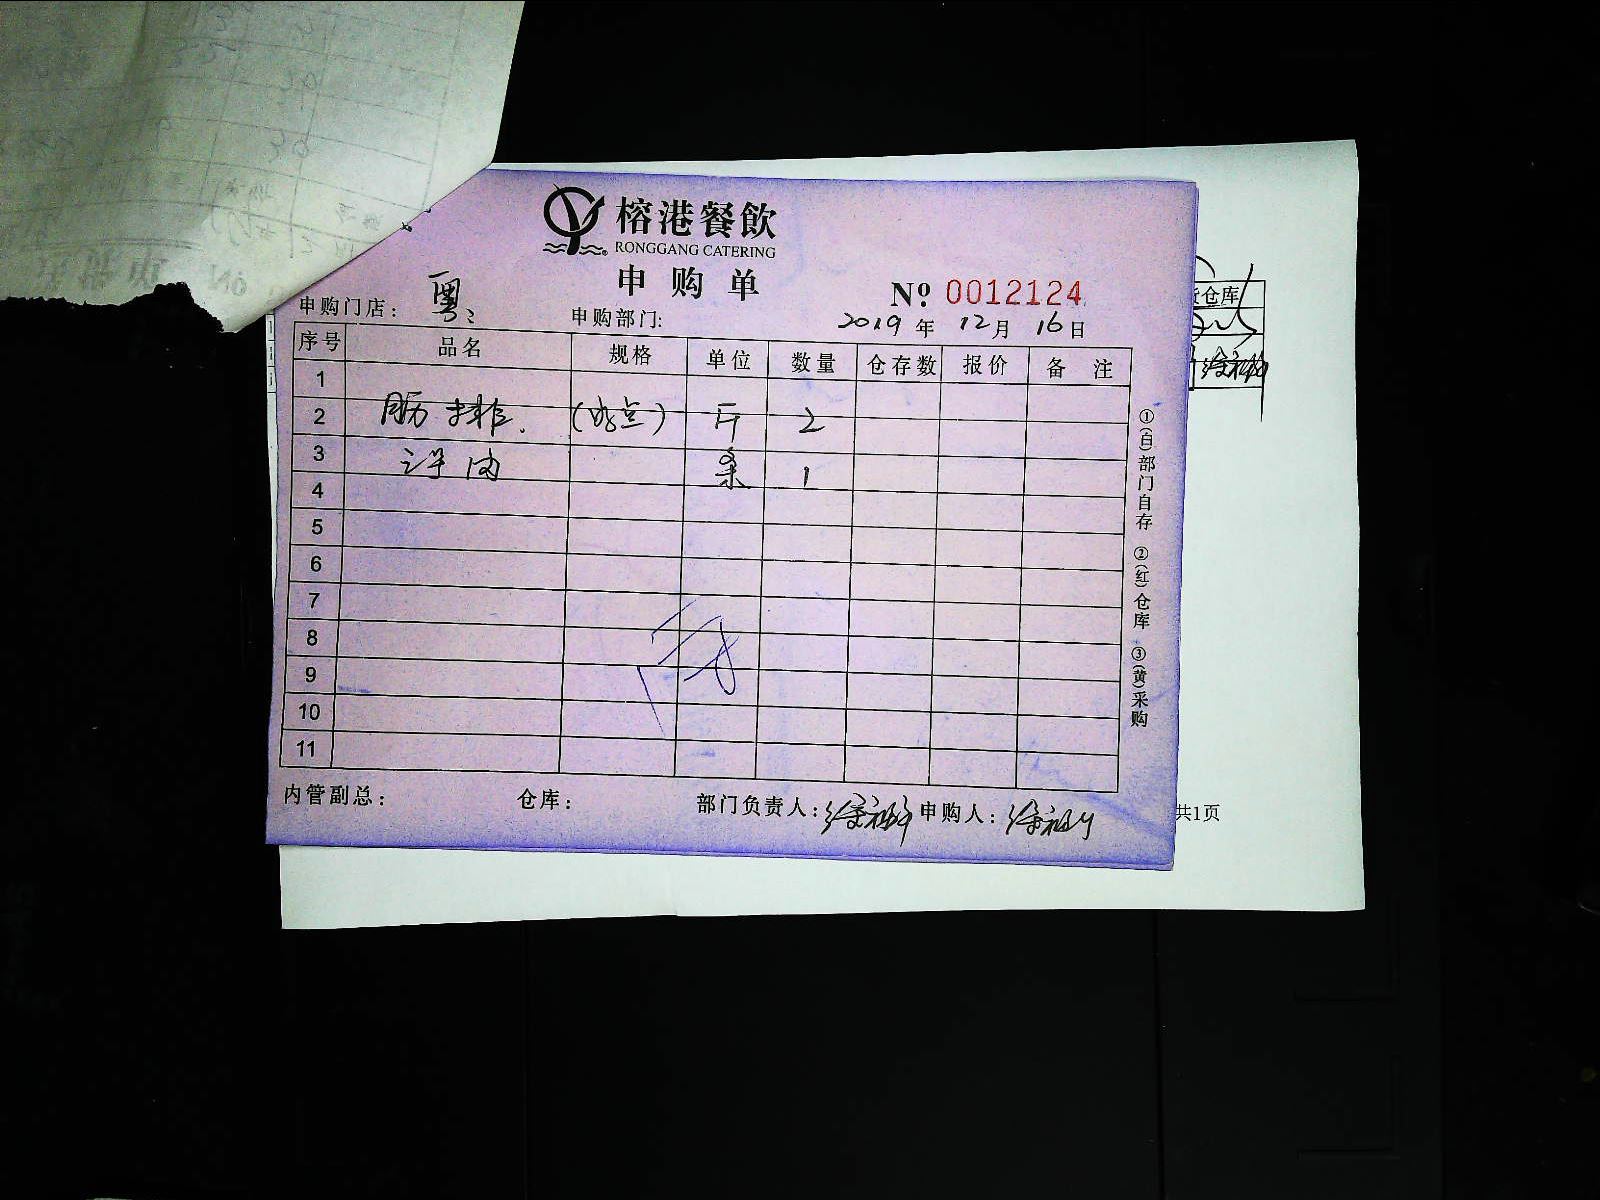 榕港餐飲
RONGGANG CATERING
申购单
№ 0012124
申购门店: 粤 申购部门: 2019年12月16日
序号 品名 规格 单位 数量 仓存数 报价 备注
1
2 肋排. (收点) 斤 2
3 条 1
4
5
6
7
8
9
10
11
内管副总: 仓库: 部门负责人: 申购人:
①(白)部门自存 ②(红)仓库 ③(黄)采购
仓库
共1页